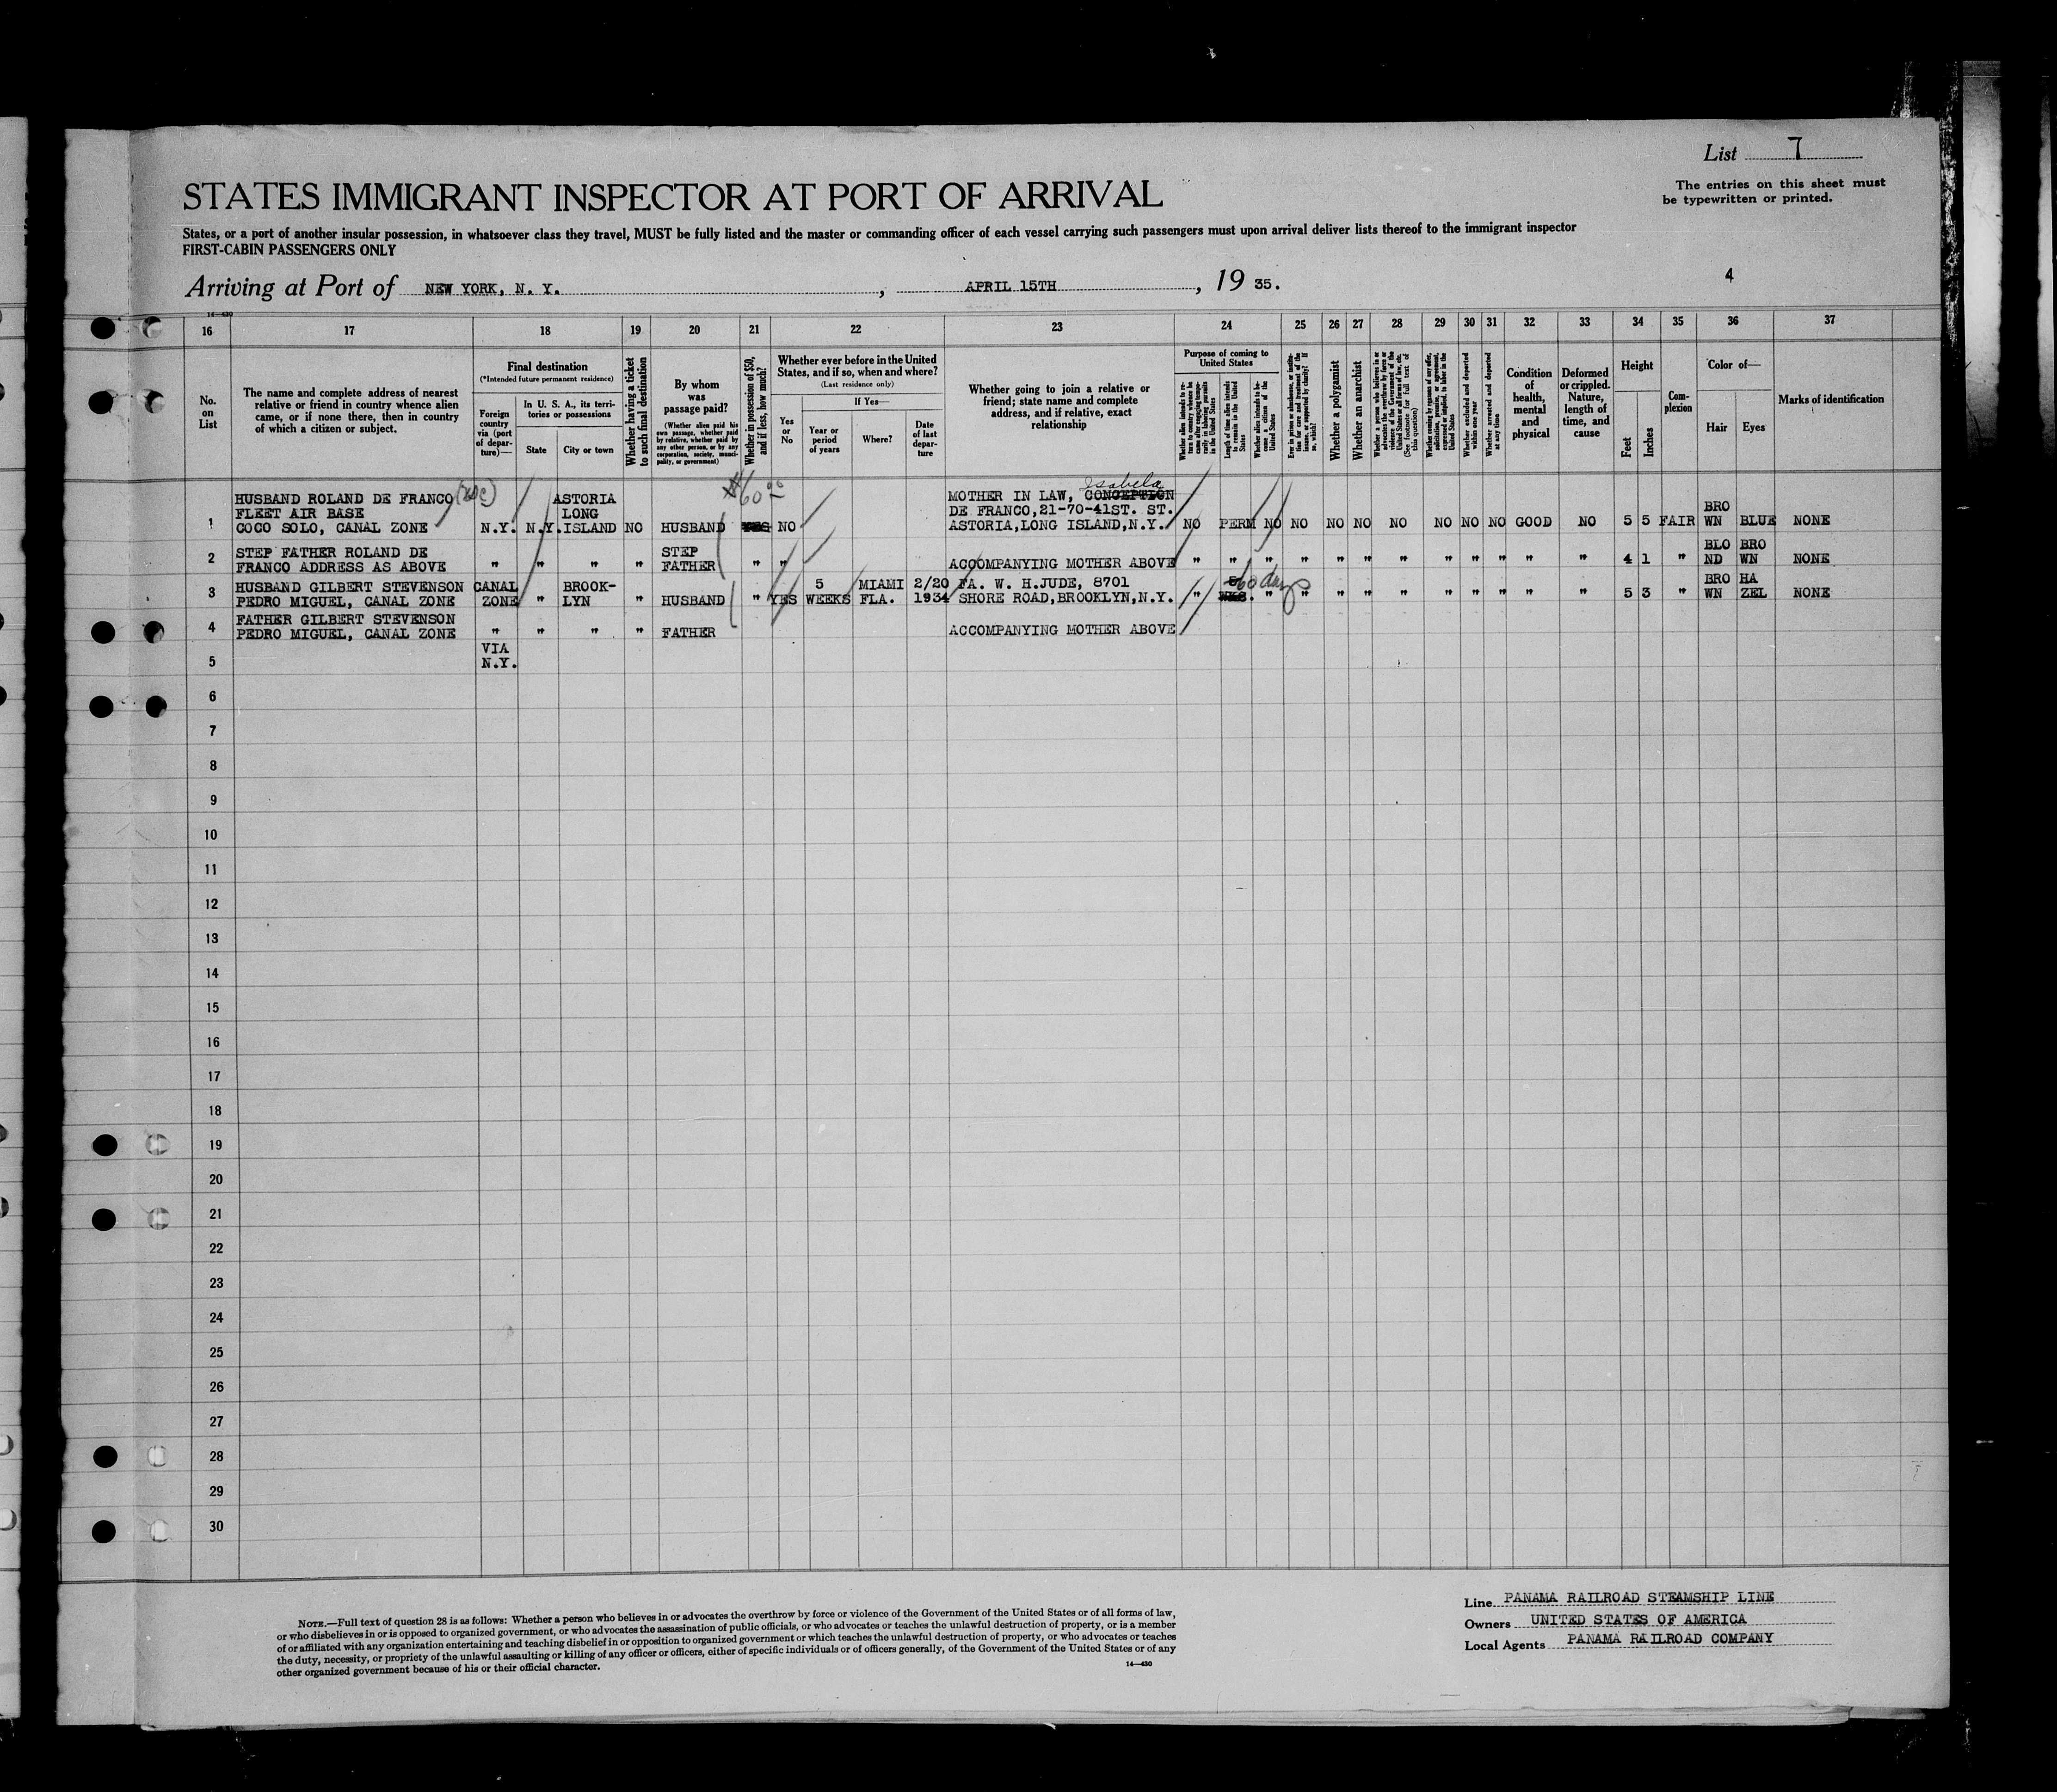 List 7
The entries on this sheet must
be typewritten or printed.
STATES IMMIGRANT INSPECTOR AT PORT OF ARRIVAL
States, or a port of another insular possession, in whatsoever class they travel, MUST be fully listed and the master or commanding officer of each vessel carrying such passengers must upon arrival deliver lists thereof to the immigrant inspector
FIRST-CABIN PASSENGERS ONLY
Arriving at Port of NEW YORK, N. Y. , APRIL 15TH , 19 35.
4
14—430
16 17 18 19 20 21 22 23 24 25 26 27 28 29 30 31 32 33 34 35 36 37
No.
on
List
The name and complete address of nearest
relative or friend in country whence alien
came, or if none there, then in country
of which a citizen or subject.
Final destination
(*Intended future permanent residence)
Foreign
country
via (port
of depar-
ture)—
In U. S. A., its terri-
tories or possessions
State
City or town
Whether having a ticket
to such final destination
By whom
was
passage paid?
(Whether alien paid his
own passage, whether paid
by relative, whether paid by
any other person, or by any
corporation, society, munici-
pality, or government)
Whether in possession of $50,
and if less, how much?
Whether ever before in the United
States, and if so, when and where?
(Last residence only)
Yes
or
No
If Yes—
Year or
period
of years
Where?
Date
of last
depar-
ture
Whether going to join a relative or
friend; state name and complete
address, and if relative, exact
relationship
Purpose of coming to
United States
Whether alien intends to re-
turn to country whence he
came after engaging tempo-
rarily in laboring pursuits
in the United States
Length of time alien intends
to remain in the United
States
Whether alien intends to be-
come a citizen of the
United States
Ever in prison or almshouse, or institu-
tion for care and treatment of the
insane, or supported by charity? If
so, which?
Whether a polygamist
Whether an anarchist
Whether a person who believes in or
advocates the overthrow by force or
violence of the Government of the
United States or all forms of law, etc.
(See footnote for full text of
this question)
Whether coming by reason of any offer,
solicitation, promise, or agreement,
expressed or implied, to labor in the
United States
Whether excluded and deported
within one year
Whether arrested and deported
at any time
Condition
of
health,
mental
and
physical
Deformed
or crippled.
Nature,
length of
time, and
cause
Height
Feet
Inches
Com-
plexion
Color of—
Hair
Eyes
Marks of identification
$60.00
Isabela
HUSBAND ROLAND DE FRANCO ASTORIA MOTHER IN LAW, CONCEPTION
FLEET AIR BASE LONG DE FRANCO,21-70-41ST. ST. BRO
1 COCO SOLO, CANAL ZONE N.Y. N.Y. ISLAND NO HUSBAND YES NO ASTORIA,LONG ISLAND,N.Y. NO PERM NO NO NO NO NO NO NO NO GOOD NO 5 5 FAIR WN BLUE NONE
STEP FATHER ROLAND DE STEP BLO BRO
2 FRANCO ADDRESS AS ABOVE " " " " FATHER " " ACCOMPANYING MOTHER ABOVE " " " " " " " " " " " " 4 1 " ND WN NONE
HUSBAND GILBERT STEVENSON CANAL BROOK- 5 MIAMI 2/20 FA. W. H.JUDE, 8701 60 days BRO HA
3 PEDRO MIGUEL, CANAL ZONE ZONE " LYN " HUSBAND " YES WEEKS FLA. 1934 SHORE ROAD,BROOKLYN,N.Y. " WKS. " " " " " " " " " " 5 3 " WN ZEL NONE
FATHER GILBERT STEVENSON
4 PEDRO MIGUEL, CANAL ZONE " " " " FATHER ACCOMPANYING MOTHER ABOVE
VIA
5 N.Y.
6
7
8
9
10
11
12
13
14
15
16
17
18
19
20
21
22
23
24
25
26
27
28
29
30
NOTE.—Full text of question 28 is as follows: Whether a person who believes in or advocates the overthrow by force or violence of the Government of the United States or of all forms of law,
or who disbelieves in or is opposed to organized government, or who advocates the assassination of public officials, or who advocates or teaches the unlawful destruction of property, or is a member
of or affiliated with any organization entertaining and teaching disbelief in or opposition to organized government or which teaches the unlawful destruction of property, or who advocates or teaches
the duty, necessity, or propriety of the unlawful assaulting or killing of any officer or officers, either of specific individuals or of officers generally, of the Government of the United States or of any
other organized government because of his or their official character.
14—430
Line PANAMA RAILROAD STEAMSHIP LINE
Owners UNITED STATES OF AMERICA
Local Agents PANAMA RAILROAD COMPANY